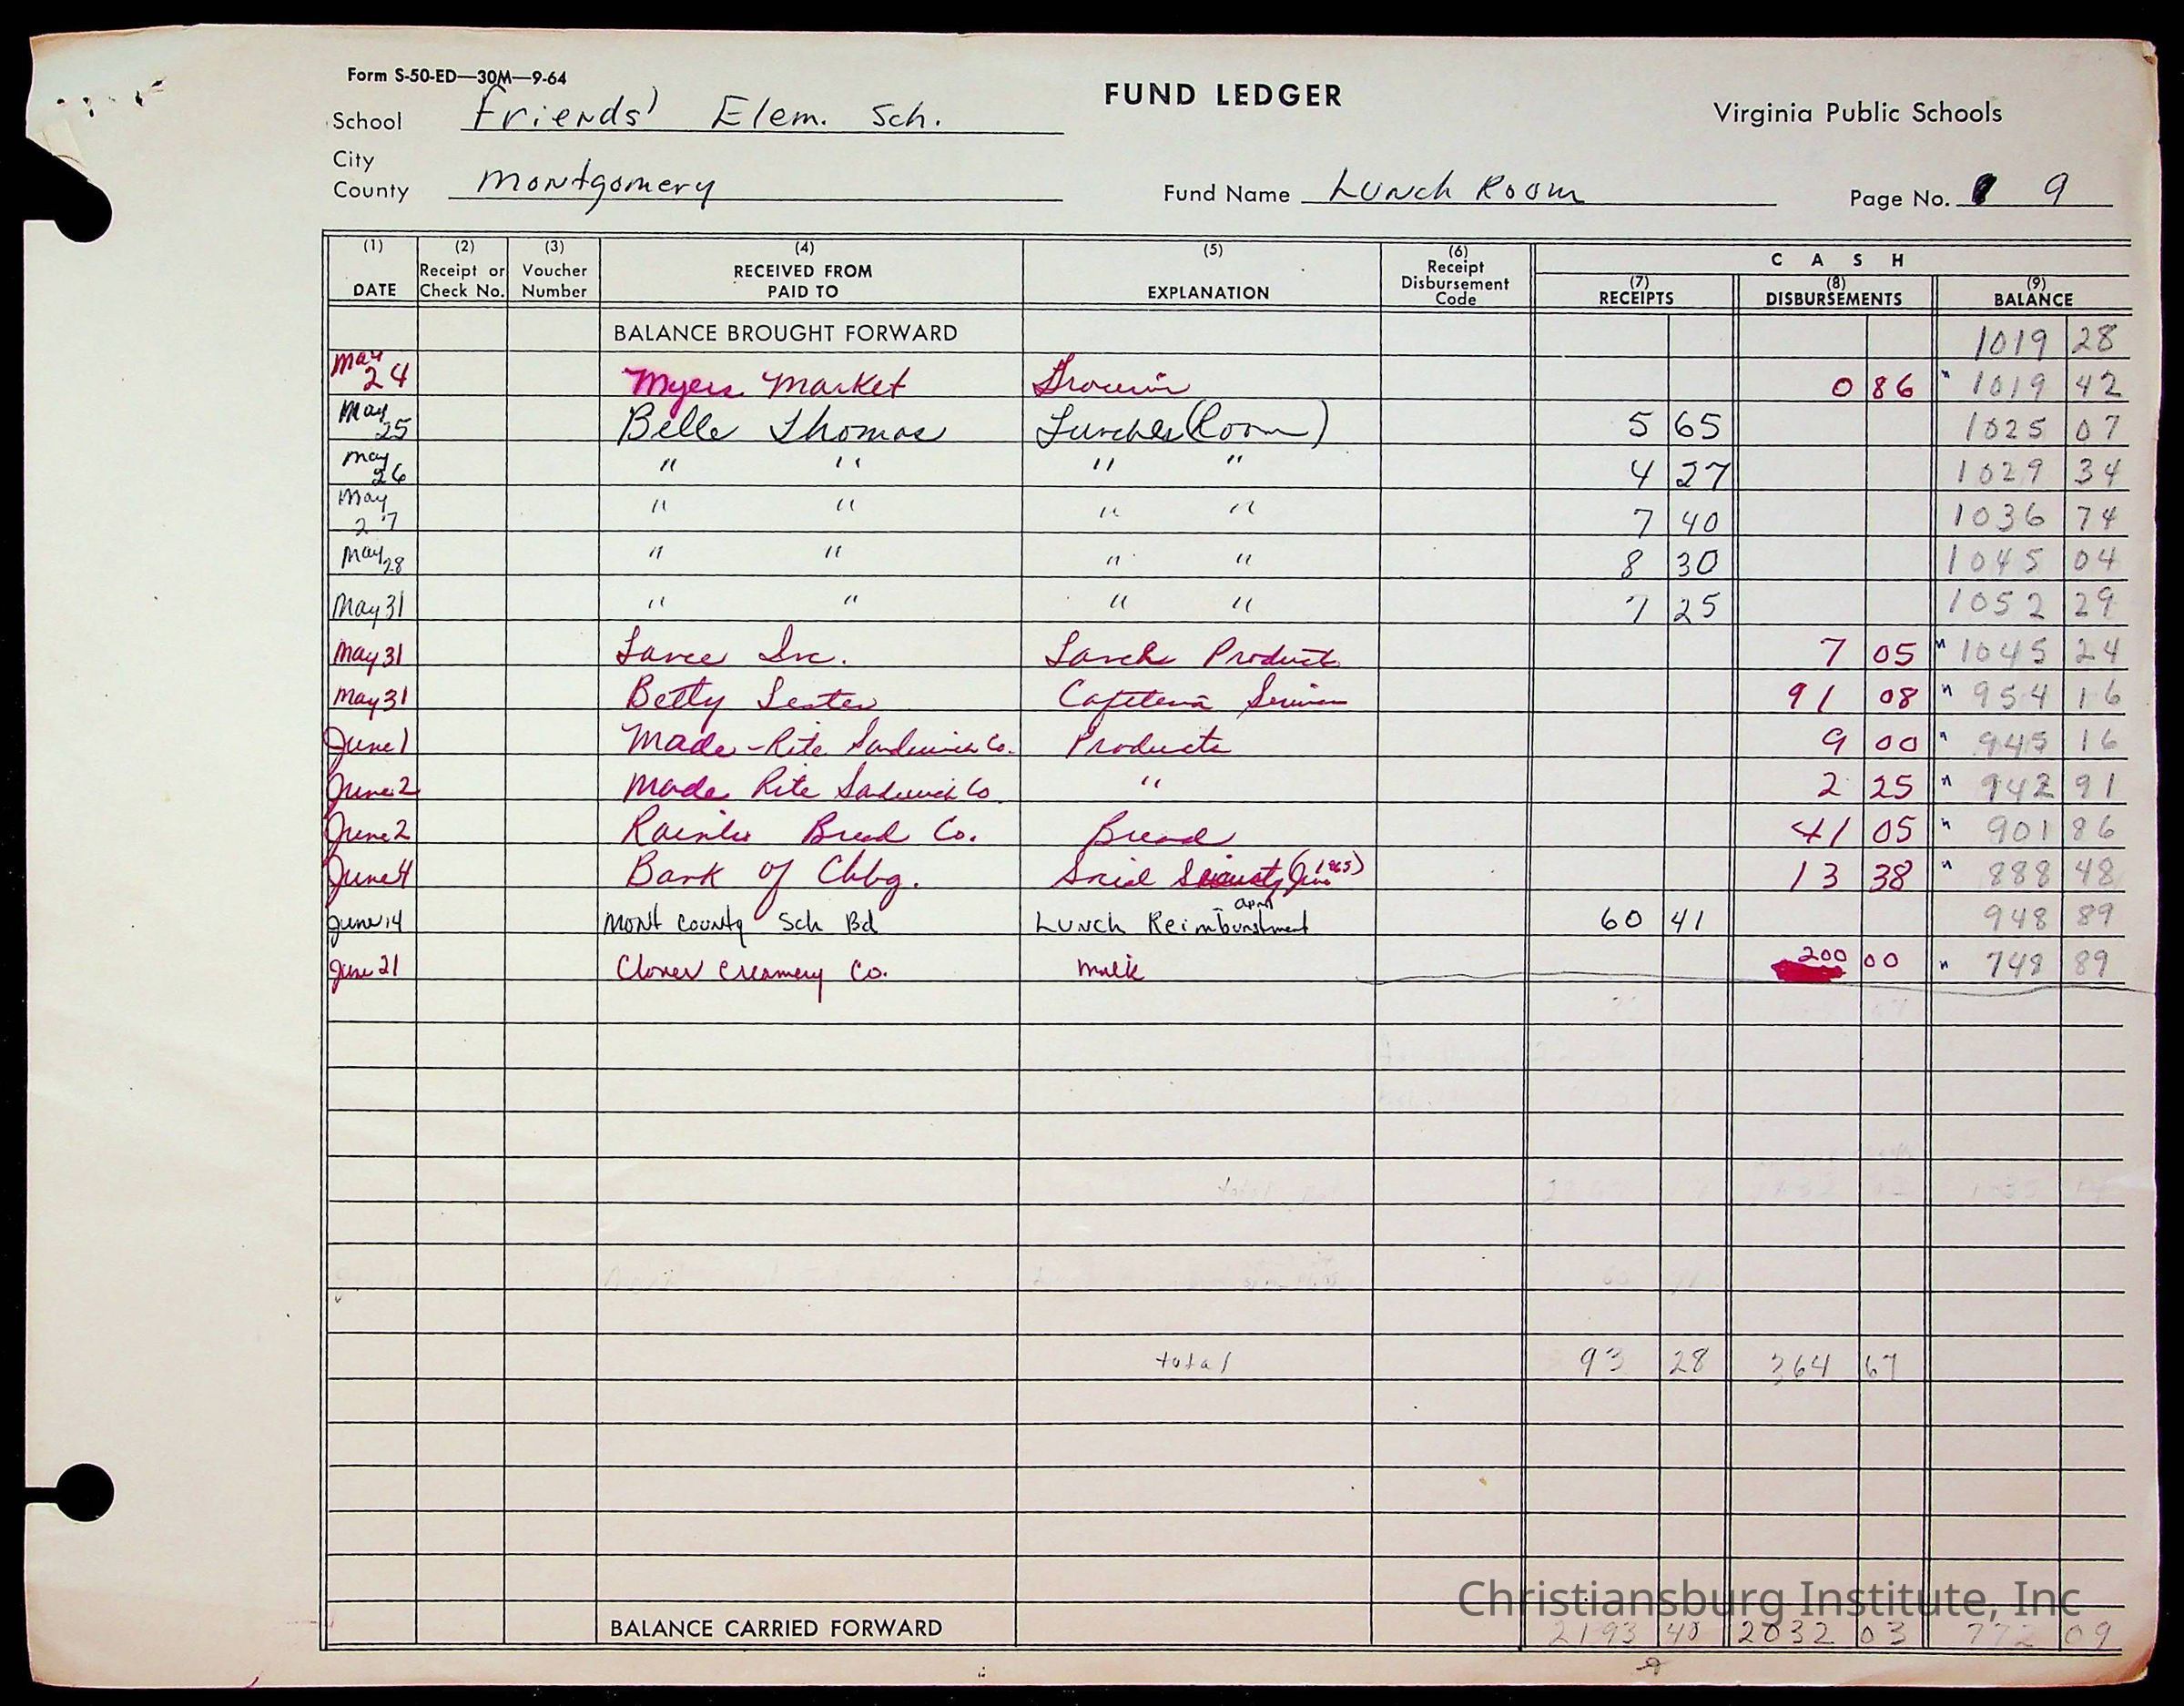 Form S-50-ED—30M—9-64
FUND LEDGER
Virginia Public Schools
School Friends' Elem. Sch.
City
County Montgomery
Fund Name Lunch Room
Page No. 9
(1) (2) (3) (4) (5) (6) C A S H
DATE Receipt or Check No. Voucher Number RECEIVED FROM PAID TO EXPLANATION Receipt Disbursement Code (7) RECEIPTS (8) DISBURSEMENTS (9) BALANCE
BALANCE BROUGHT FORWARD 1019 28
May 24 Myers Market 0 86 " 1019 42
May 25 Belle Thomas Lunches (Room) 5 65 1025 07
May 26 " " " " 4 27 1029 34
May 27 " " " " 7 40 1036 74
May 28 " " " " 8 30 1045 04
May 31 " " " " 7 25 1052 29
May 31 Lance Inc. Product 7 05 " 1045 24
May 31 Betty Lester Cafeteria 91 08 " 954 16
June 1 Made-Rite Sandwich Co. Products 9 00 " 945 16
June 2 Made Rite Sandwich Co. " 2 25 " 942 91
June 2 Bread Co. Bread 41 05 " 901 86
June 4 Bank of Chbg. Social Security (1965) 13 38 " 888 48
June 14 Mont County Sch Bd Lunch Reimburstment April 60 41 948 89
June 21 Clover Creamery Co. Milk 200 00 " 748 89
total 93 28 364 67
Christiansburg Institute, Inc
BALANCE CARRIED FORWARD 2193 40 2032 03 772 09